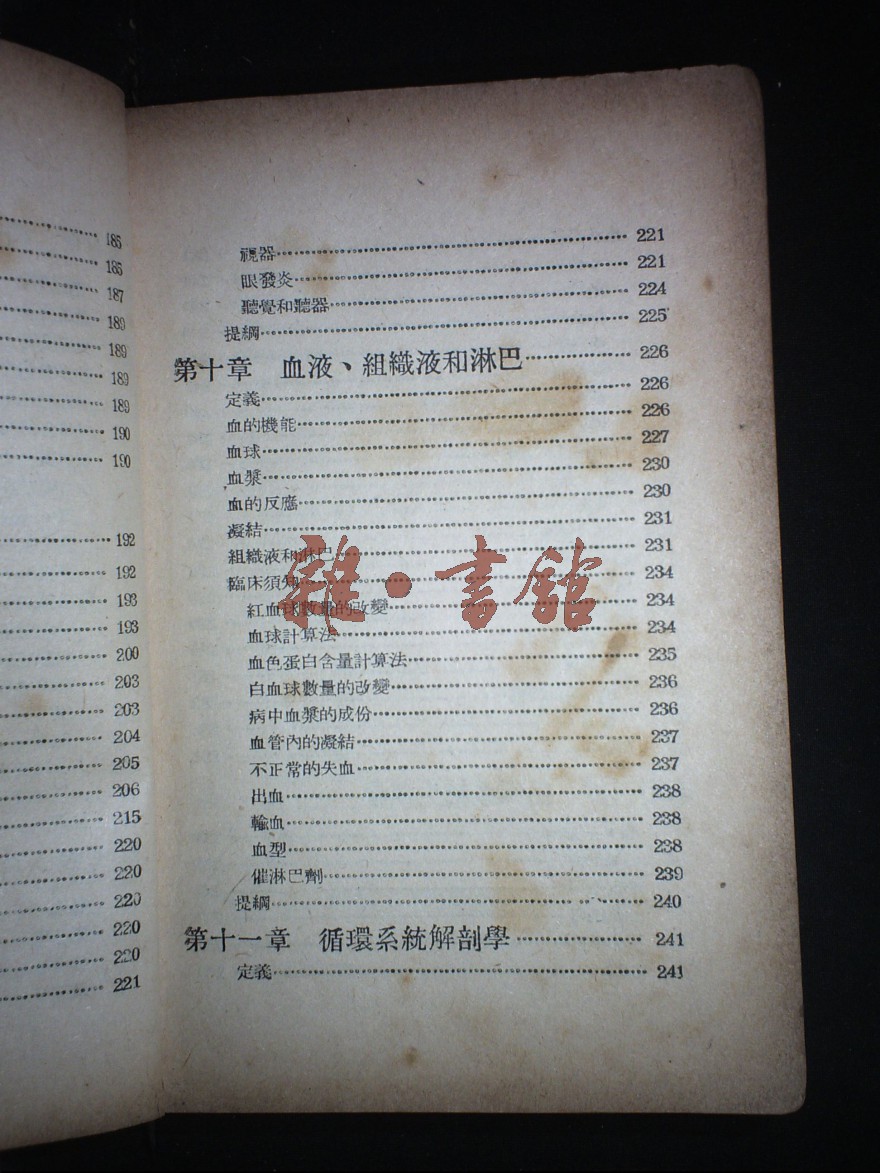 185
186
187
189
189
189
189
190
190
192
192
193
193
200
203
203
204
205
206
215
220
220
220
220
220
221
視器 221
眼發炎 221
聽覺和聽器 224
提綱 225
第十章 血液、組織液和淋巴 226
定義 226
血的機能 226
血球 227
血漿 230
血的反應 230
凝結 231
組織液和淋巴 231
臨床須知 234
紅血球數量的改變 234
血球計算法 234
血色蛋白含量計算法 235
白血球數量的改變 236
病中血漿的成份 236
血管內的凝結 237
不正常的失血 237
出血 238
輸血 238
血型 238
催淋巴劑 239
提綱 240
第十一章 循環系統解剖學 241
定義 241
雜·書館